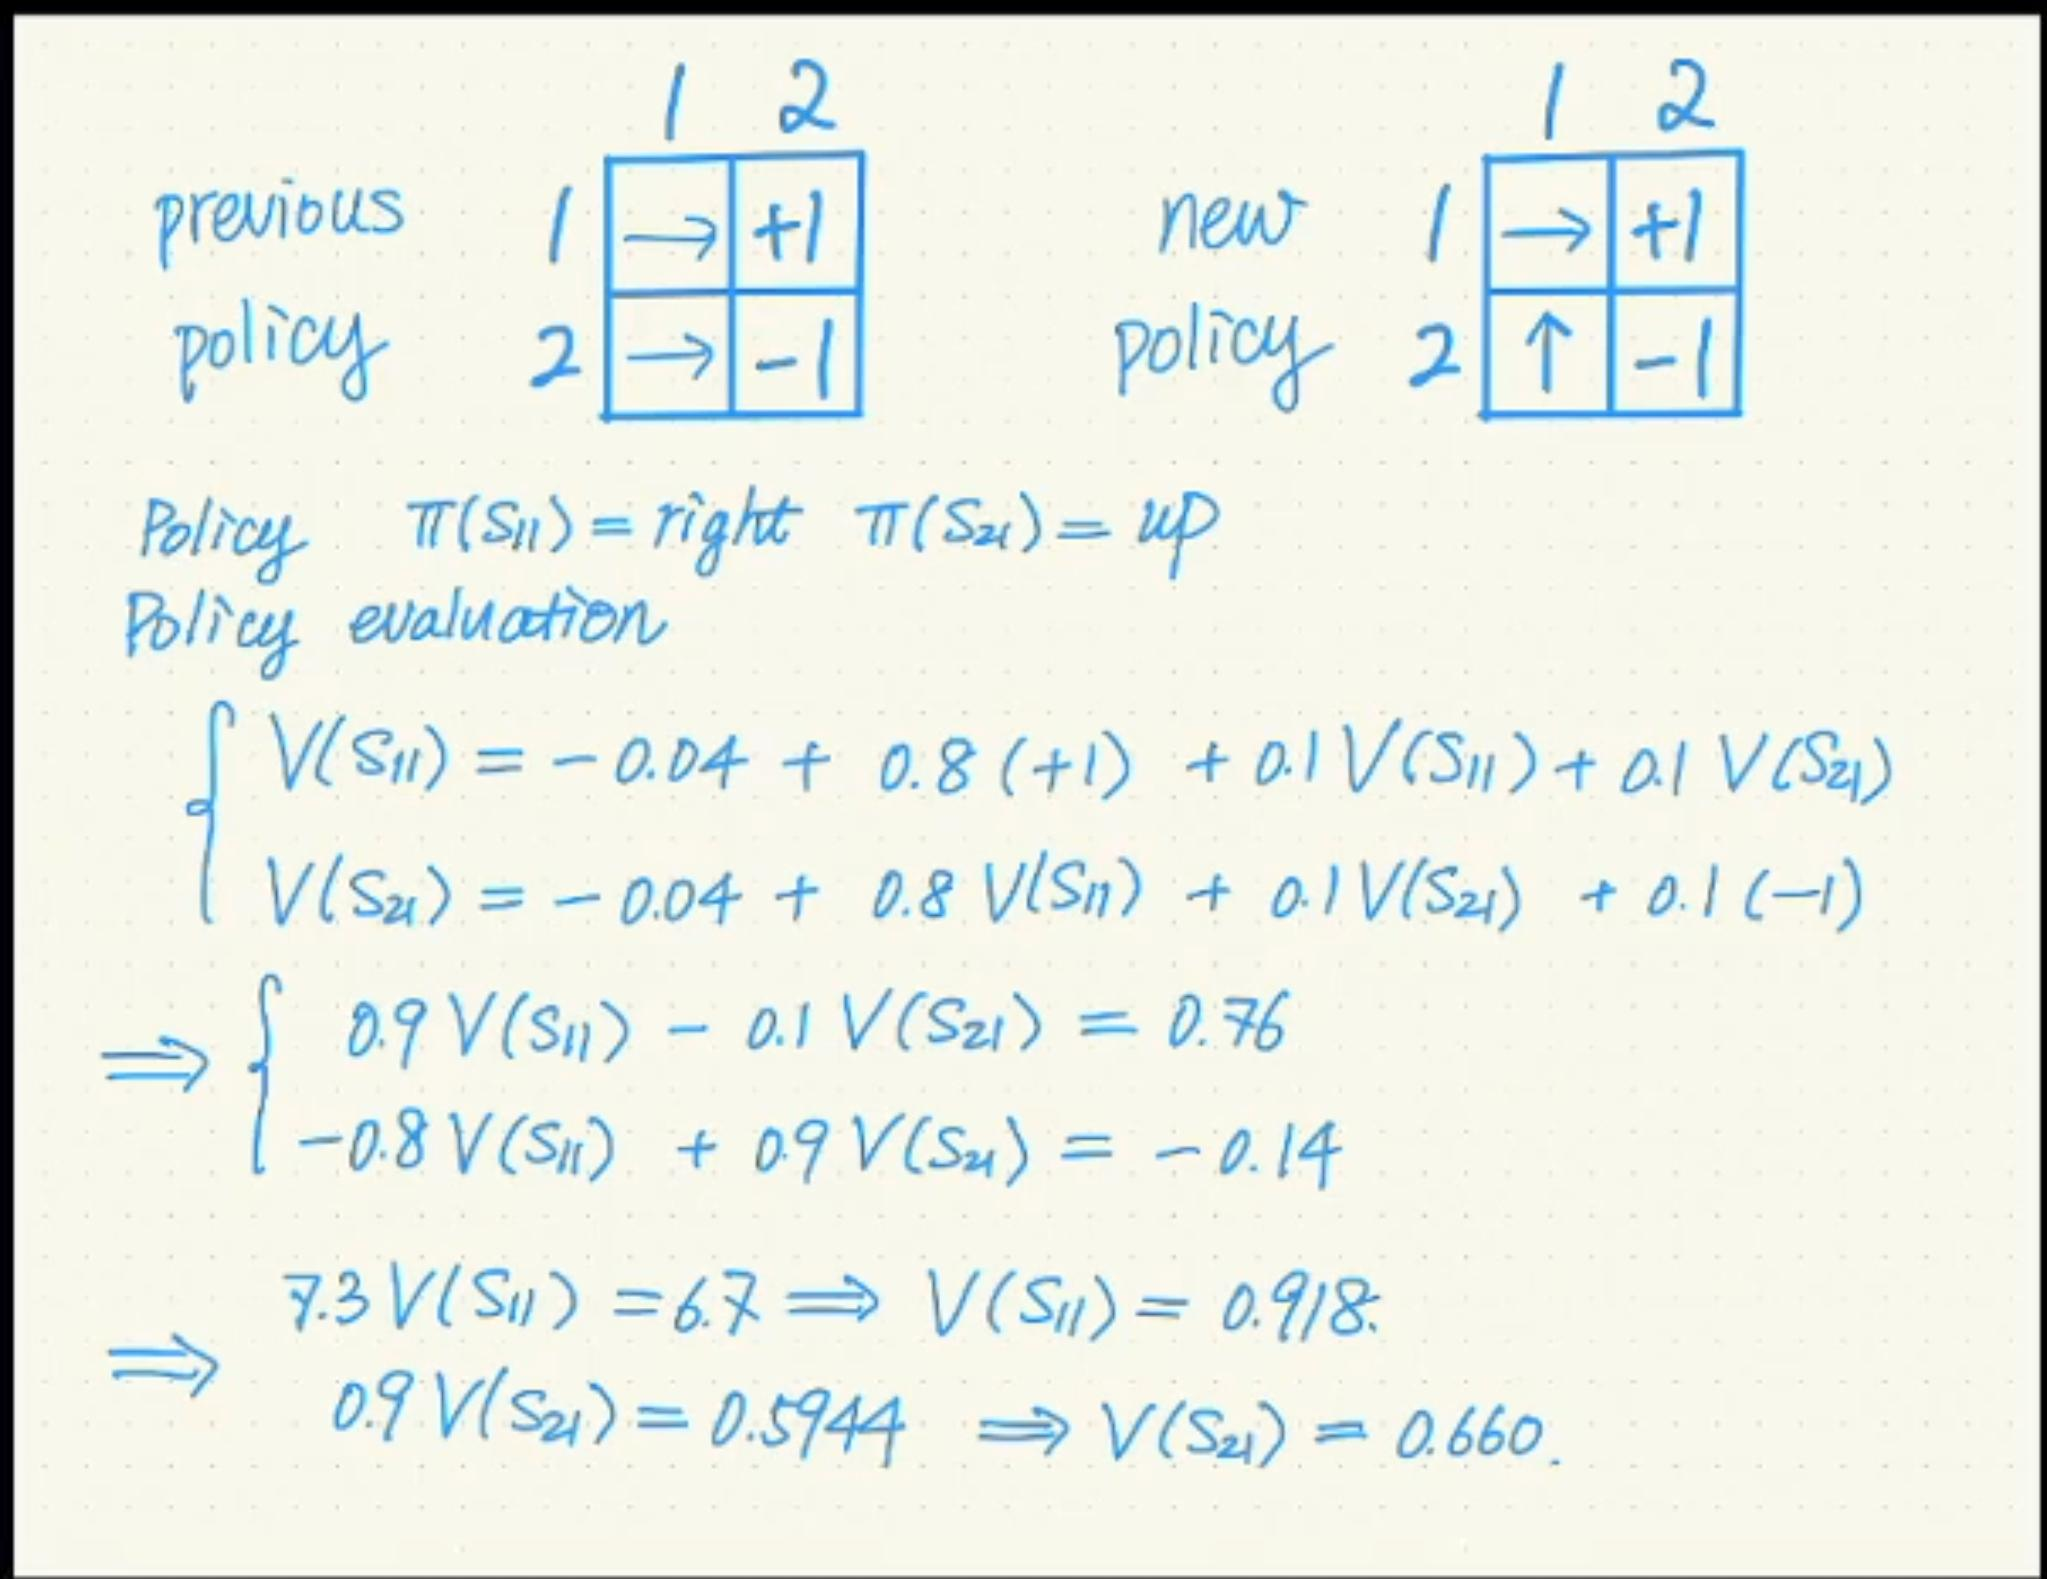 1 2 1 2
previous 1 → +1 new 1 → +1
policy 2 → -1 policy 2 ↑ -1
Policy π(S₁₁) = right π(S₂₁) = up
Policy evaluation
V(S₁₁) = -0.04 + 0.8 (+1) + 0.1 V(S₁₁) + 0.1 V(S₂₁)
V(S₂₁) = -0.04 + 0.8 V(S₁₁) + 0.1 V(S₂₁) + 0.1 (-1)
⇒ 0.9 V(S₁₁) - 0.1 V(S₂₁) = 0.76
-0.8 V(S₁₁) + 0.9 V(S₂₁) = -0.14
7.3 V(S₁₁) = 6.7 ⇒ V(S₁₁) = 0.918.
⇒ 0.9 V(S₂₁) = 0.5944 ⇒ V(S₂₁) = 0.660.